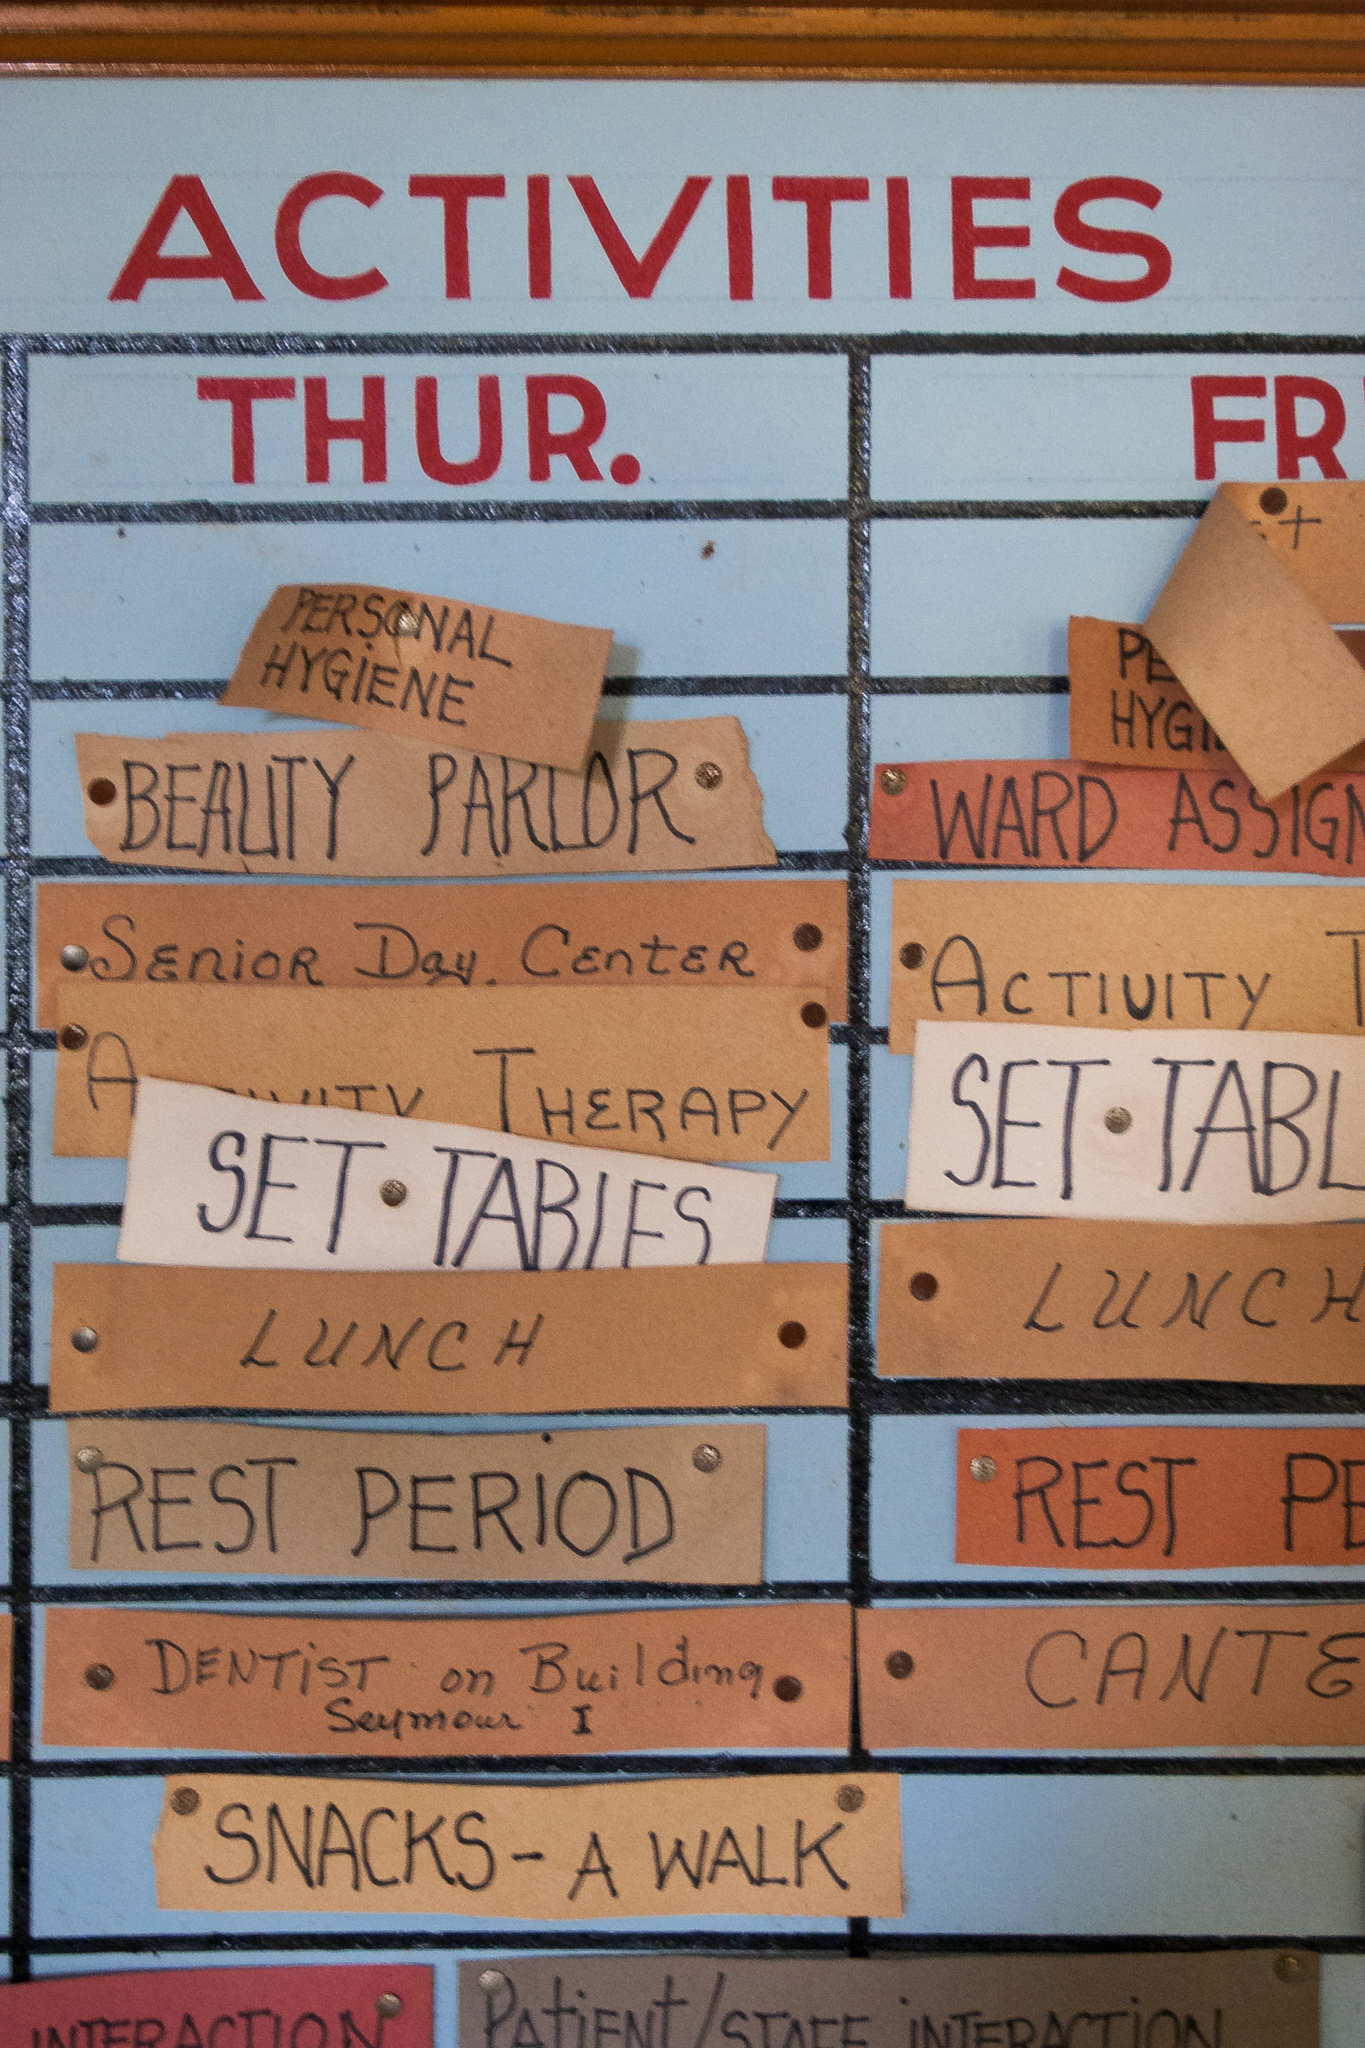 ACTIVITIES
THUR.
PERSONAL
HYGIENE
BEAUTY PARLOR
SENIOR DAY CENTER
ACTIVITY THERAPY
SET TABLES
LUNCH
REST PERIOD
DENTIST on Building
Seymour I
SNACKS - A WALK
INTERACTION
PATIENT/STAFF INTERACTION
FR
HYGI
WARD ASSIGN
ACTIVITY T
SET TABL
LUNCH
REST PE
CANTE